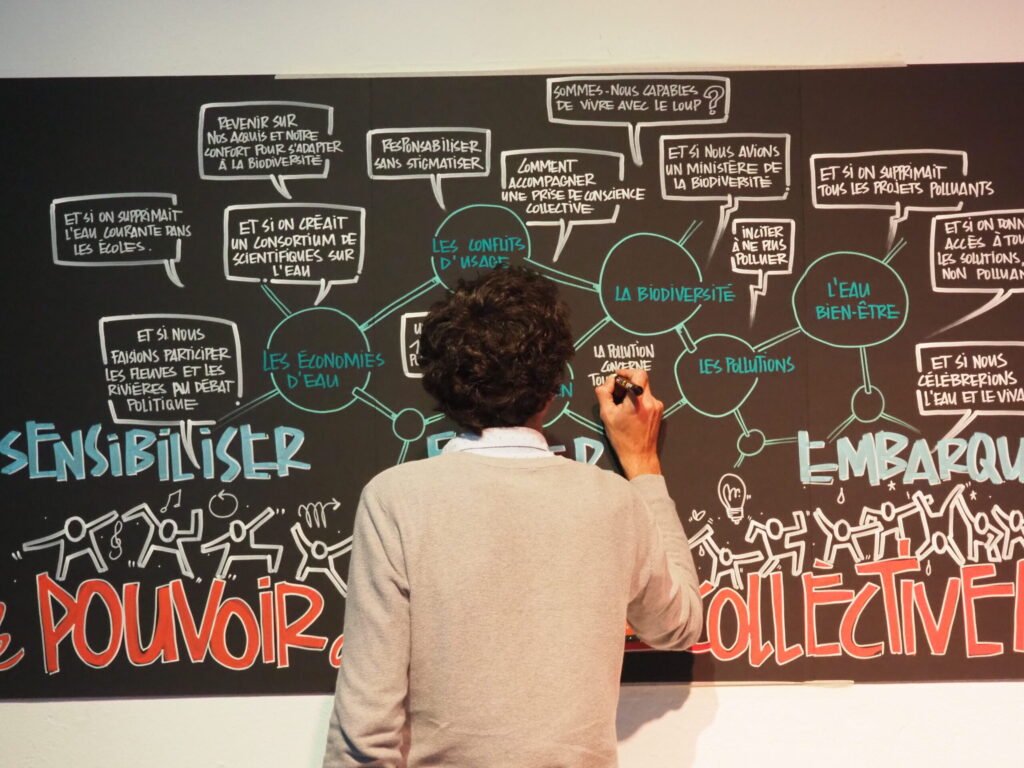 SOMMES-NOUS CAPABLES
DE VIVRE AVEC LE LOUP ?
REVENIR SUR
NOS ACQUIS ET NOTRE
CONFORT POUR S'ADAPTER
À LA BIODIVERSITÉ
RESPONSABILISER
SANS STIGMATISER
COMMENT
ACCOMPAGNER
UNE PRISE DE CONSCIENCE
COLLECTIVE
ET SI NOUS AVIONS
UN MINISTÈRE DE
LA BIODIVERSITÉ
ET SI ON SUPPRIMAIT
TOUS LES PROJETS POLLUANTS
ET SI ON SUPPRIMAIT
L'EAU COURANTE DANS
LES ÉCOLES.
ET SI ON CRÉAIT
UN CONSORTIUM DE
SCIENTIFIQUES SUR
L'EAU
LES CONFLITS
D'USAGE
INCITER
À NE PLUS
POLLUER
ET SI ON
ACCÈS À TOU
LES SOLUTIONS
NON
LA BIODIVERSITÉ
L'EAU
BIEN-ÊTRE
ET SI NOUS
FAISIONS PARTICIPER
LES FLEUVES ET LES
RIVIÈRES AU DÉBAT
POLITIQUE
LES ÉCONOMIES
D'EAU
LA POLLUTION
CONCERNE
LES POLLUTIONS
ET SI NOUS
CÉLÉBRERIONS
L'EAU ET LE
SENSIBILISER
EMBARQU
POUVOIR
COLLECTIVE